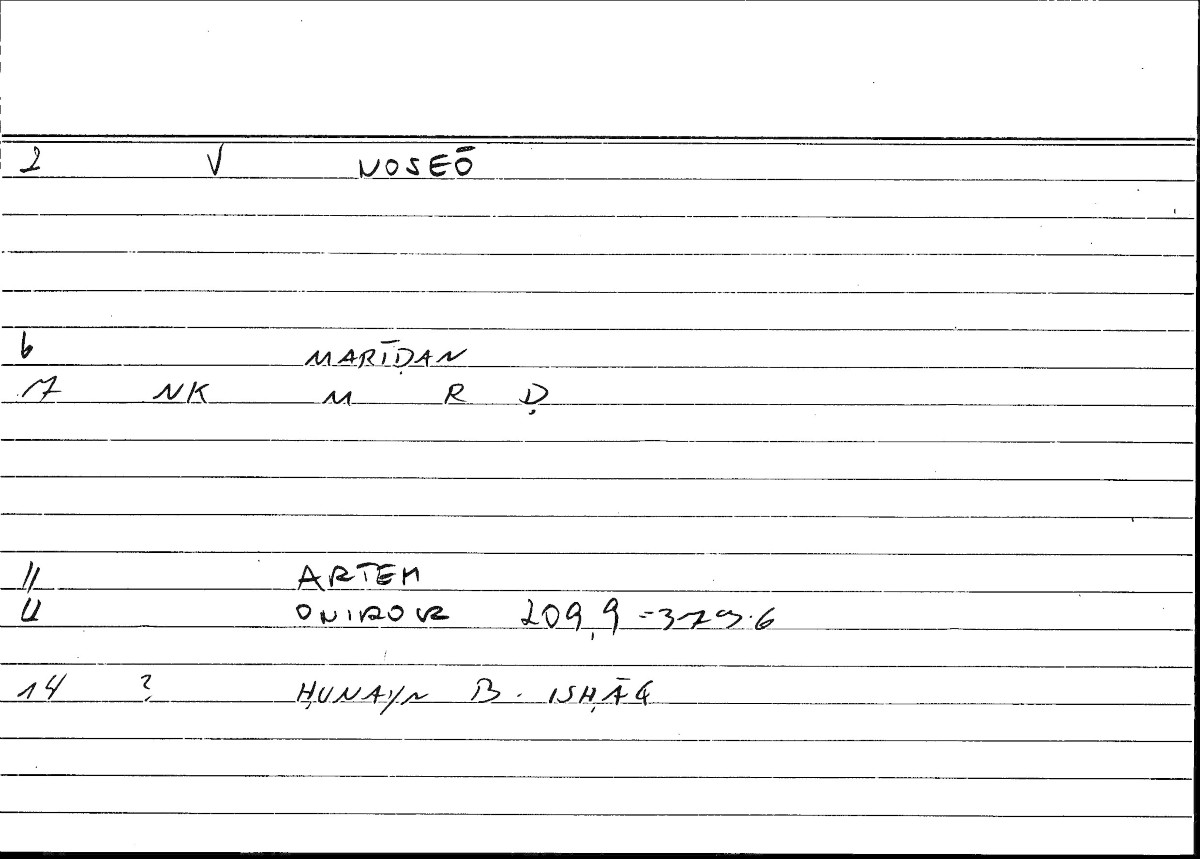 2 V NOSEŌ
6 MARĪḌAN
17 NK M R Ḍ
11 ARTEM
12 ONIROCR 209,9-379.6
14 ? ḤUNAYN B. ISḤĀQ